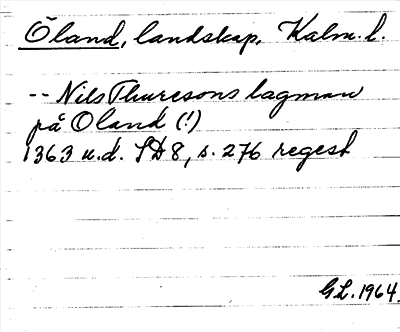 Öland, landskap, Kalm. l.
-- Nils Thuresons lagman
på Öland (!)
1363 u.d. SD 8, s. 276 regest
GL. 1964.